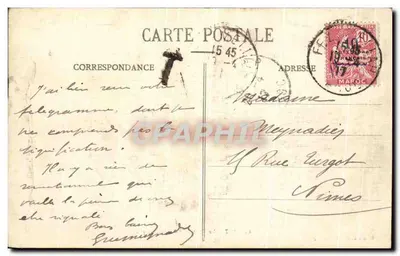 CARTE POSTALE
CORRESPONDANCE
ADRESSE
T
15 45
10
MAROC
J'ai bien reçu votre
télégramme, dont je
ne comprends pas la
signification.
Il n'y a rien de
sensationnel qui
vaille la peine de
être signalé
Bons baisers
Madame
Meynadier
15 Rue Turgot
Nimes
CPARAMA